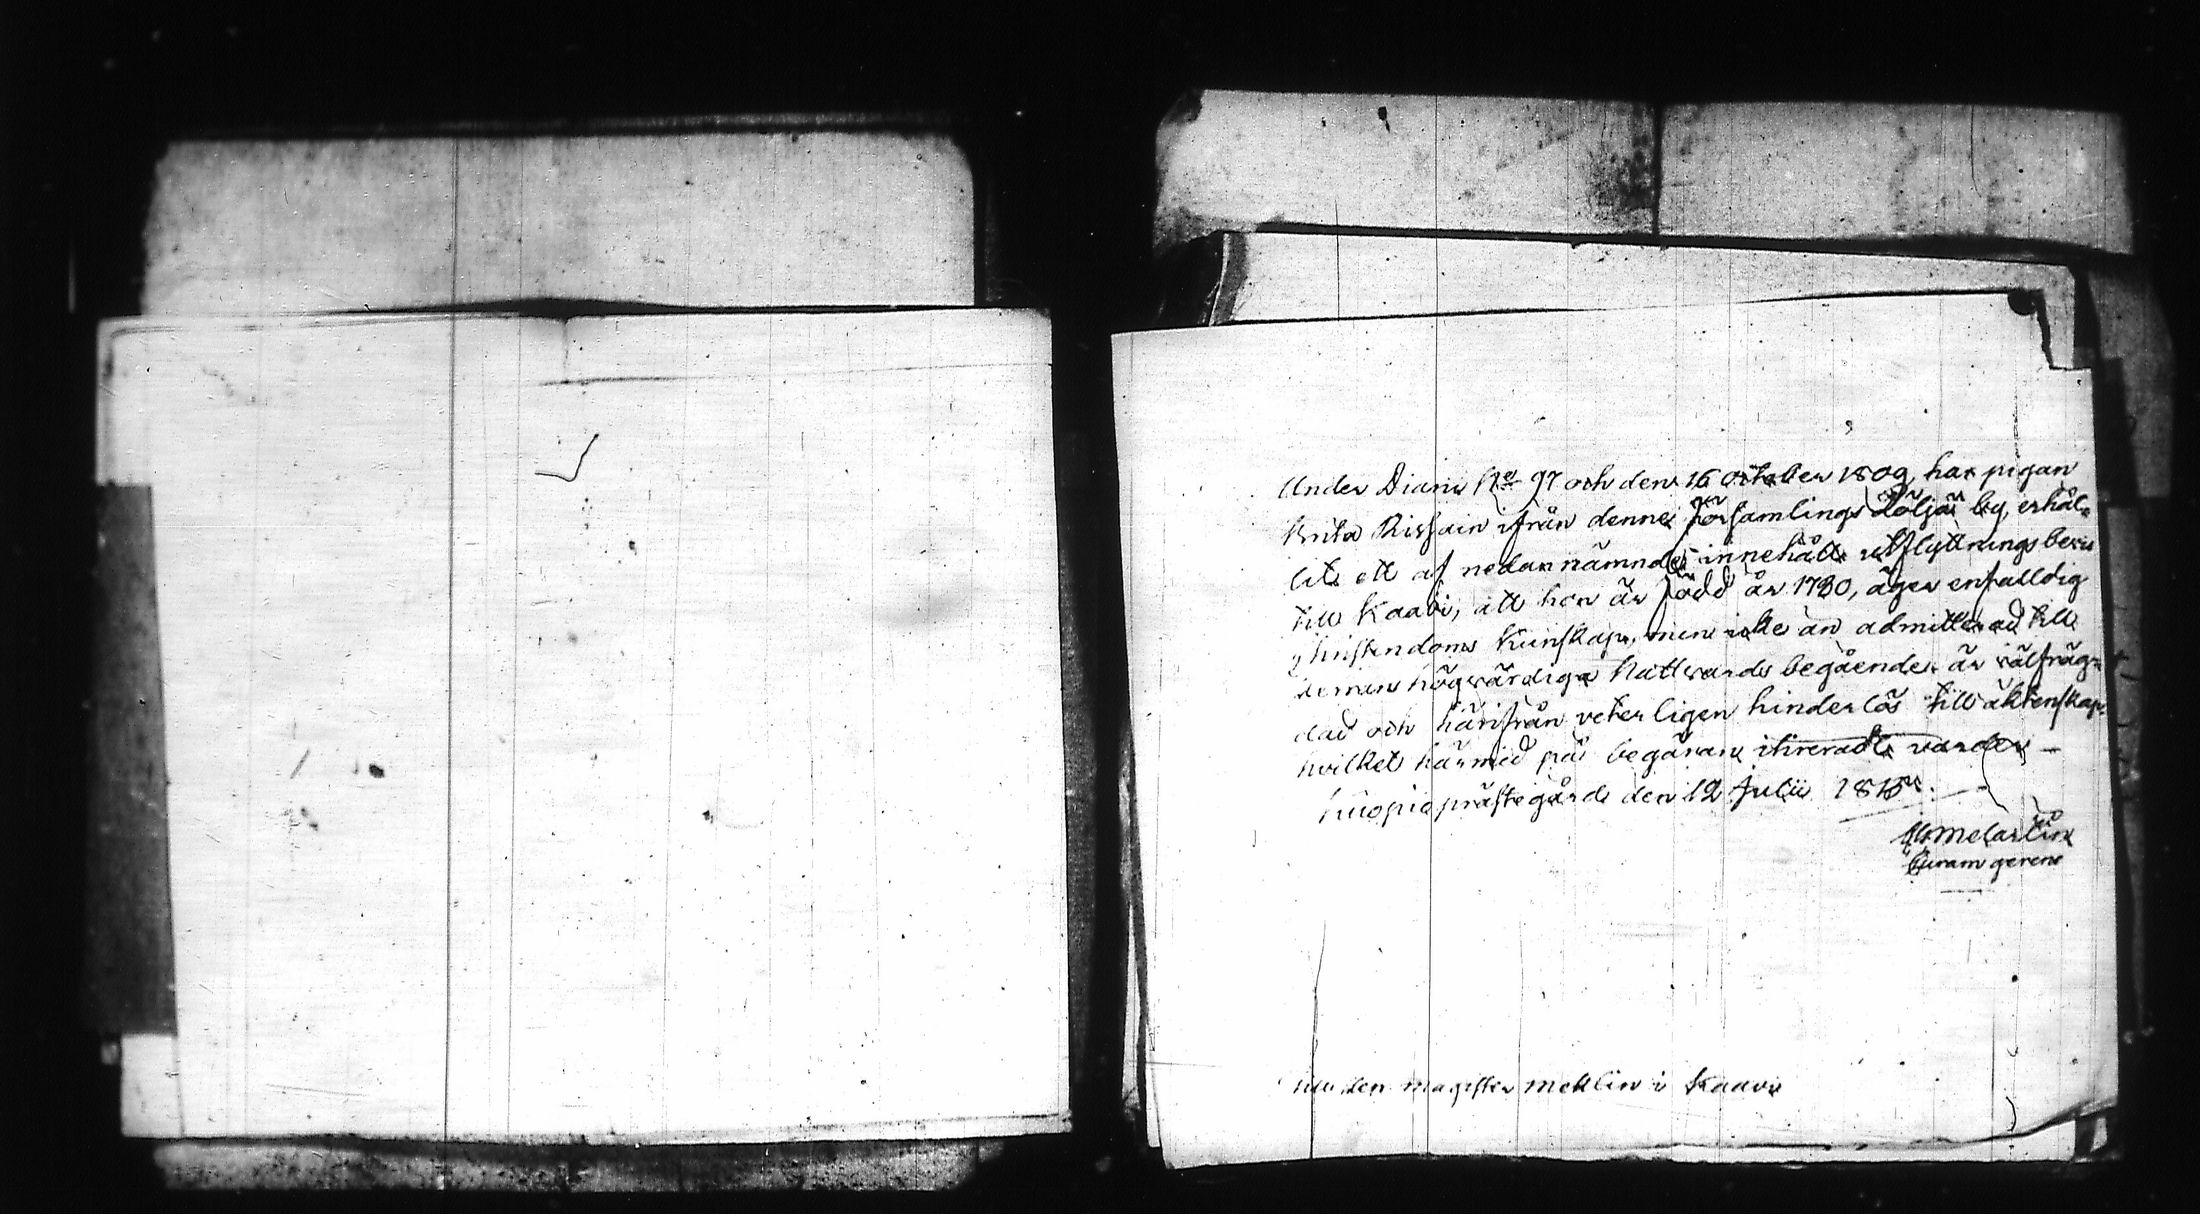 Under Diarie No 97 och den 16 October 1809, har pigan
Brita Rissain ifrån denne Församlings Döljäi by, erhål-
lit ett af nedannämnde innehålt utflyttnings bevis
till Kaavi, att hon är född år 1780, äger enfalldig
Christendoms Kunskap, men icke än admitterad till
dennes högwärdiga Nattwards begående, är välfräg-
dad och härifrån veterligen hinderlös till äktenskap,
hvilket härmed på begäran itireradt varder —
Kuopio prästegård den 12 Julii 1815.
Melartin
Curam gerens
magister Mellin i Kaavi